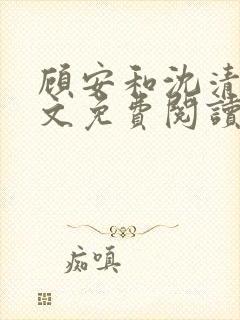 顾安和沈清
文免費閱讀
痴嗔